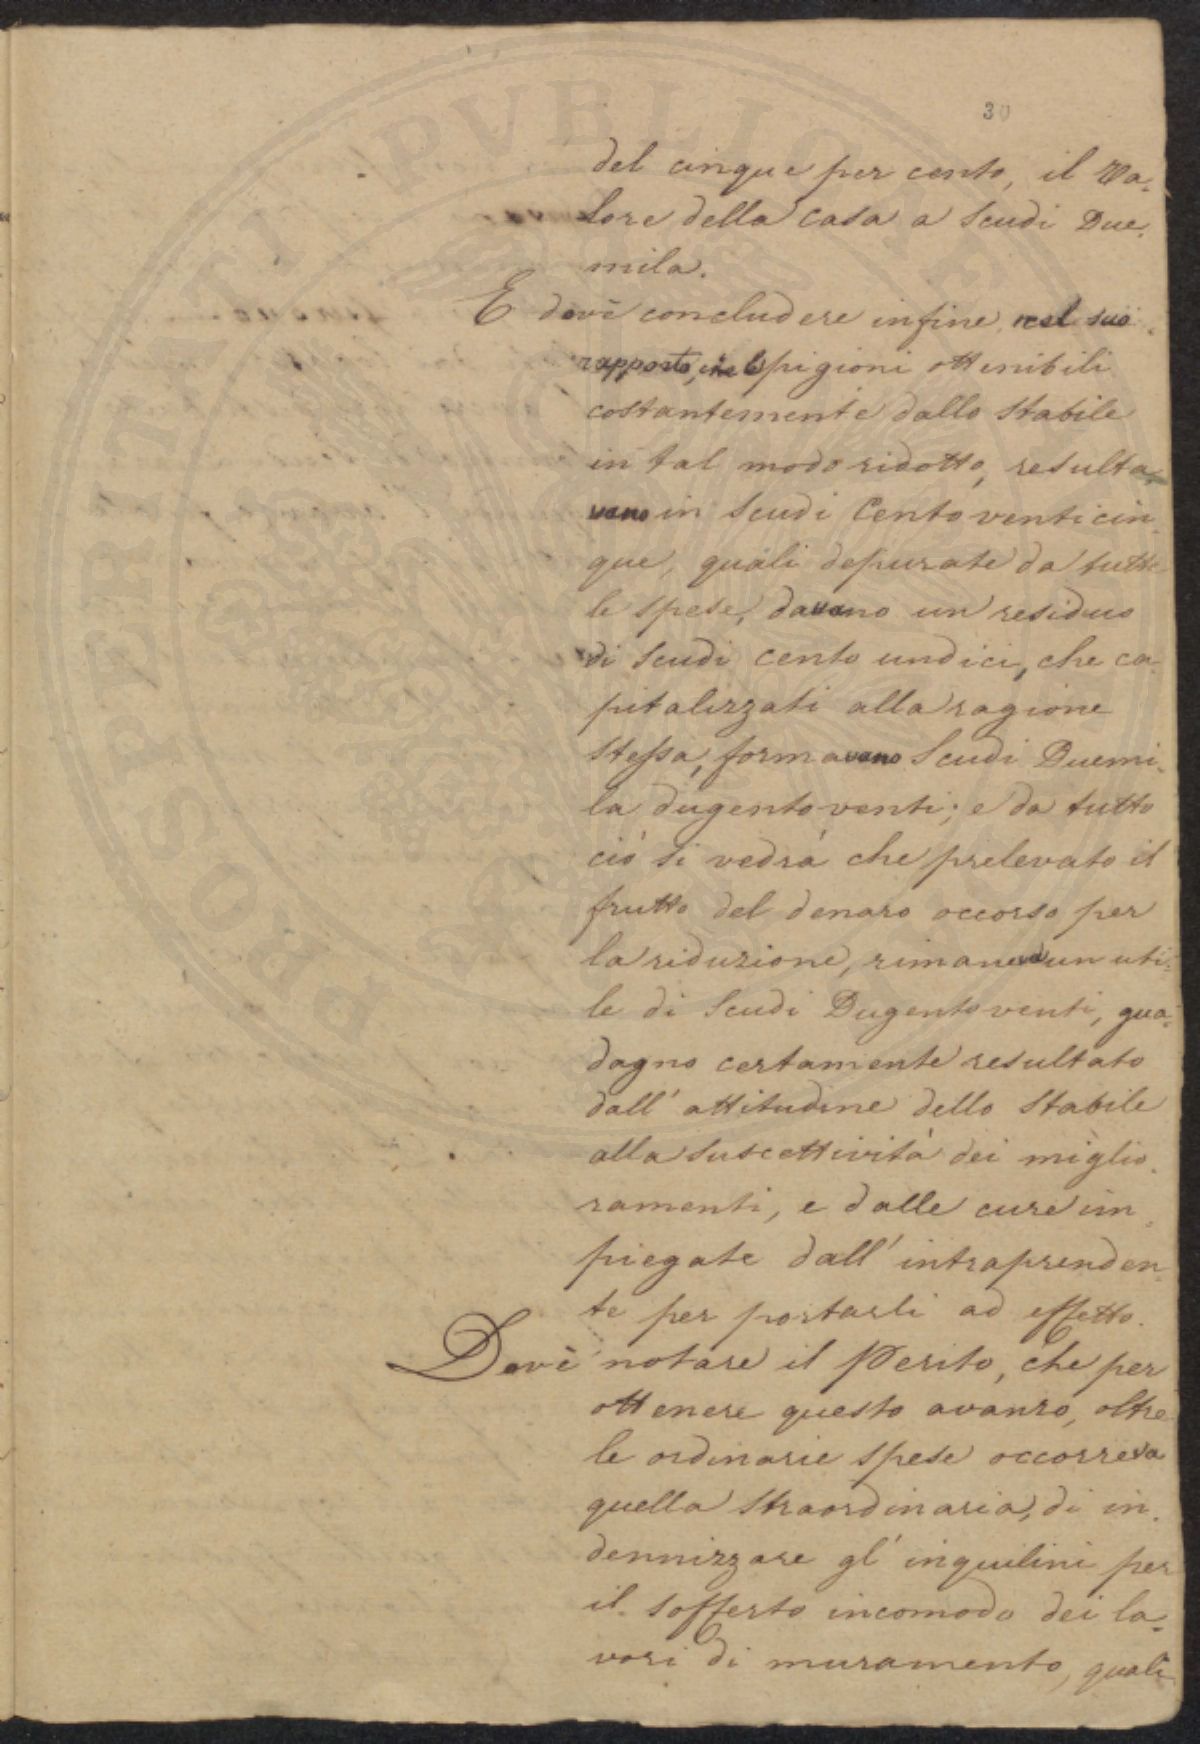 30
del cinque per cento, il Va-
lore della casa a Scudi Due-
mila.
E dovè concludere in fine, nel suo
rapporto, che le pigioni ottenibili
costantemente dallo Stabile
in tal modo ridotto, resulta-
vano in Scudi Cento venticin-
que, quali depurate da tutte
le spese, davano un residuo
di Scudi cento undici, che ca-
pitalizzati alla ragione
stessa, formavano Scudi Duemi-
la dugento venti; e da tutto
ciò si vedrà che prelevato il
frutto del denaro occorso per
la riduzione, rimaneva un uti-
le di Scudi Dugento venti, gua-
dagno certamente resultato
dall' attitudine dello Stabile
alla suscettività dei miglio-
ramenti, e dalle cure im-
piegate dall' intraprenden-
te per portarli ad effetto.
Dovè notare il Perito, che per
ottenere questo avanzo, oltre
le ordinarie spese occorreva
quella straordinaria, di in-
dennizzare gl' inquilini per
il sofferto incomodo dei la-
vori di muramento, quali
PROSPERITATI PVBLICAE